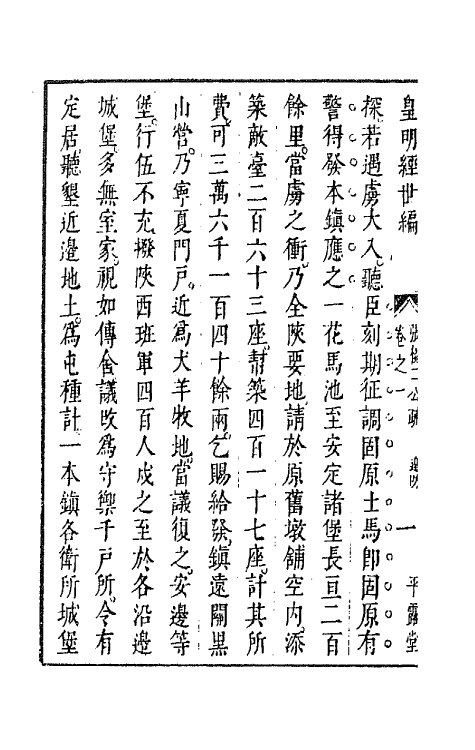 皇明經世編 卷之一 平露堂
探若遇虜大入聽臣刻期征調固原士馬即固原有
警得發本鎮應之一花馬池至安定諸堡長亘二百
餘里當虜之衝乃全陝要地請於原舊墩鋪空內添
築敵臺二百六十三座幫築四百一十七座計其所
費可三萬六千一百四十餘兩乞賜給發鎮遠關黑
山營乃寧夏門戶近為犬羊牧地當議復之安邊等
堡行伍不充撥陝西班軍四百人戍之至於各沿邊
城堡多無室家視如傳舍議改為守禦千戶所令有
定居聽墾近邊地土為屯種計一本鎮各衛所城堡